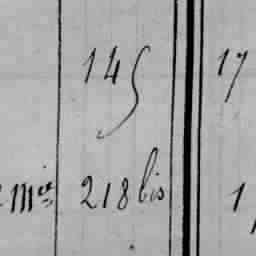 145 17
mie 218 bis 1